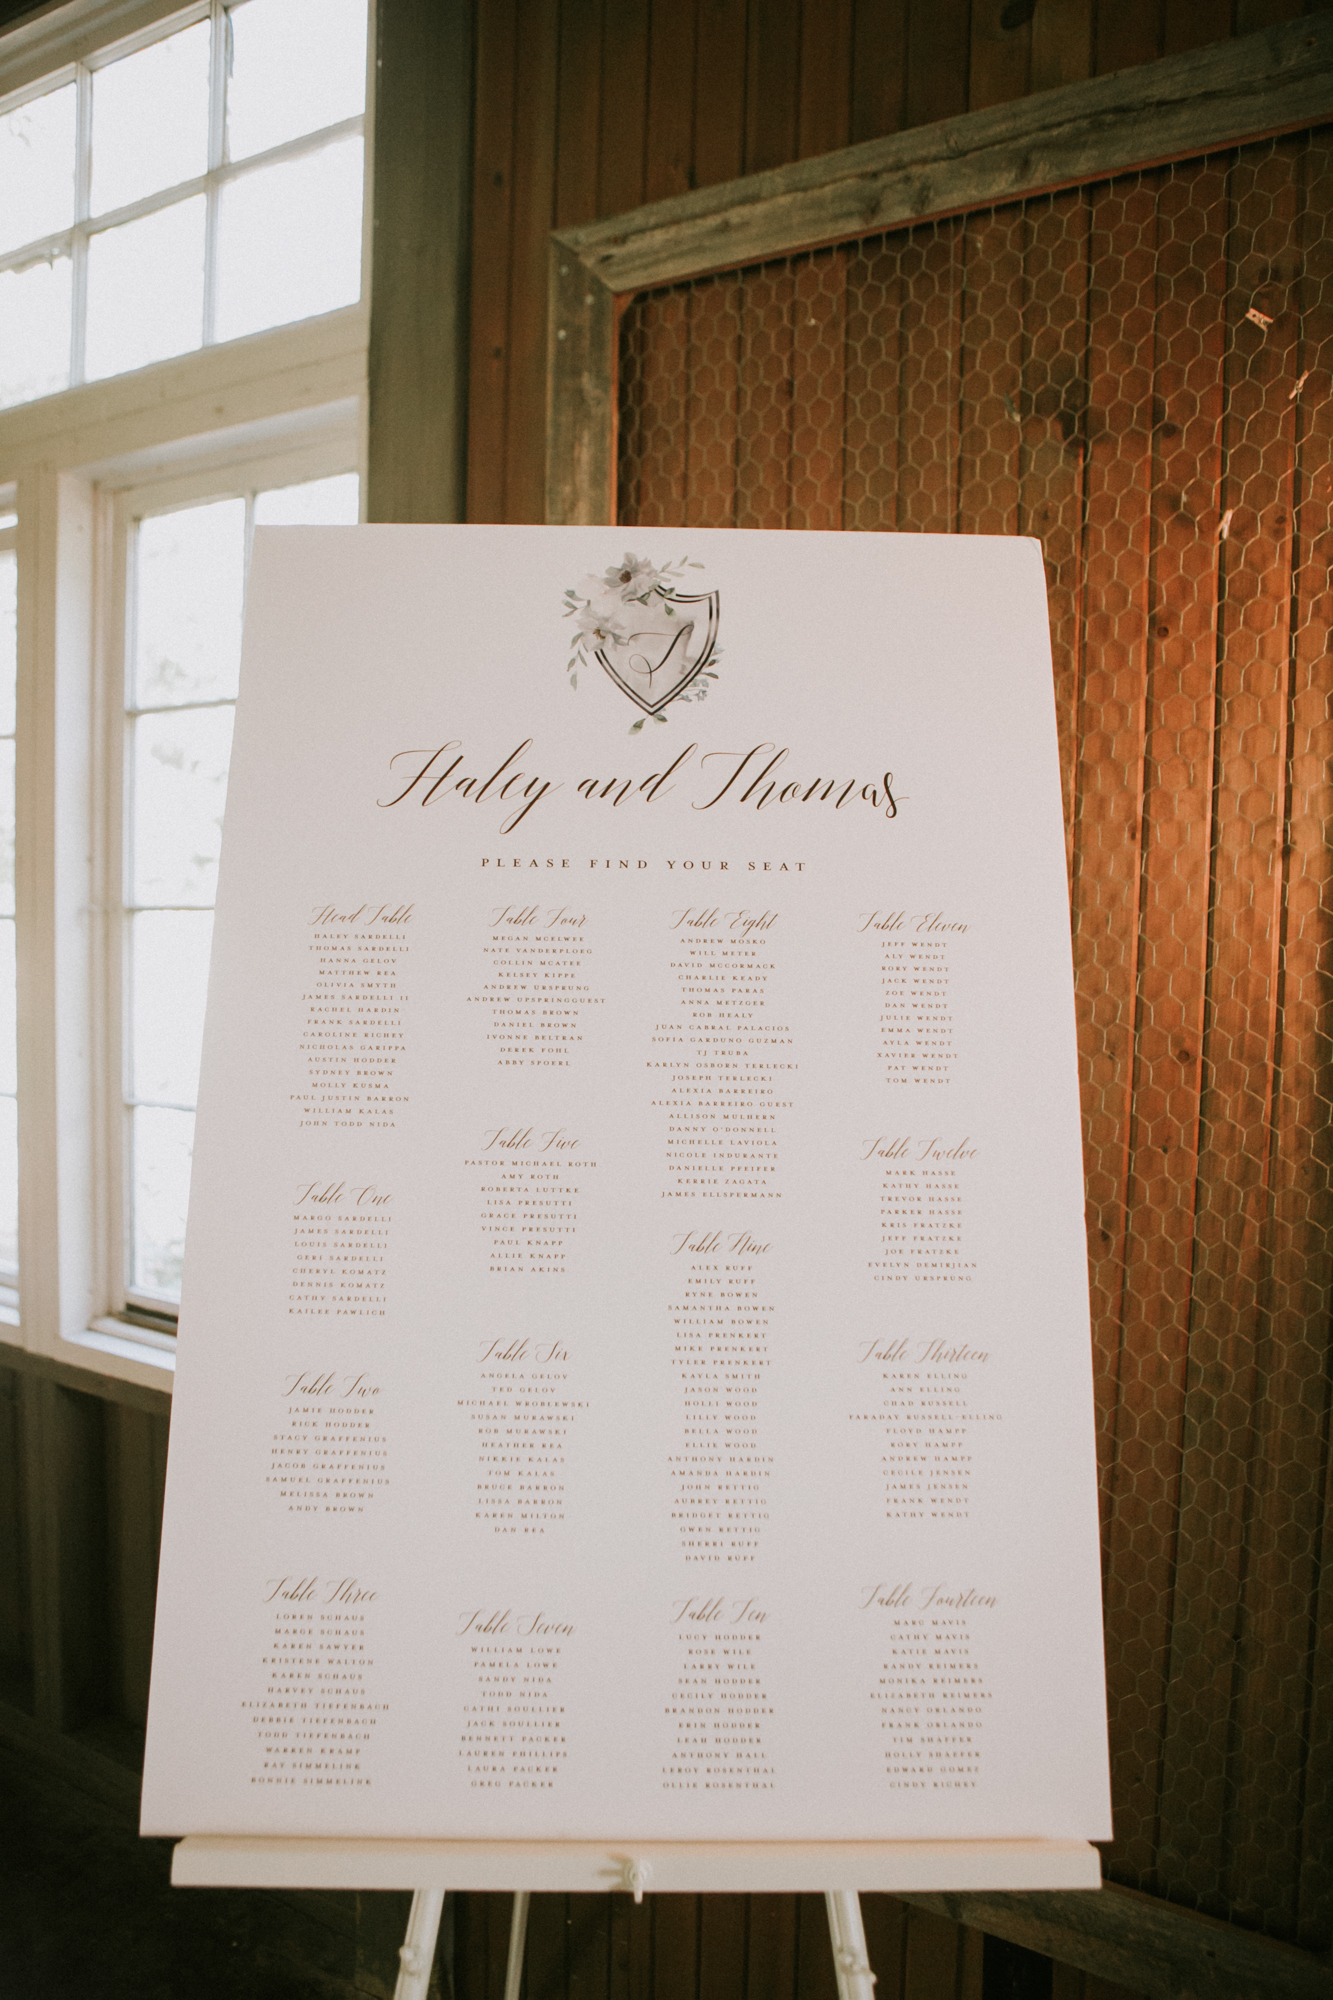 S
Haley and Thomas
PLEASE FIND YOUR SEAT
Head Table
HALEY SARDELLI
THOMAS SARDELLI
HANNA GELOV
MATTHEW REA
OLIVIA SMYTH
JAMES SARDELLI II
RACHEL HARDIN
FRANK SARDELLI
CAROLINE RICHEY
NICHOLAS GARIPPA
AUSTIN HODDER
SYDNEY BROWN
MOLLY KUSMA
PAUL JUSTIN BARRON
WILLIAM KALAS
JOHN TODD NIDA
Table One
MARGO SARDELLI
JAMES SARDELLI
LOUIS SARDELLI
GERI SARDELLI
CHERYL KOMATZ
DENNIS KOMATZ
CATHY SARDELLI
KAILEE PAWLICH
Table Two
JAMIE HODDER
RICK HODDER
STACY GRAFFENIUS
HENRY GRAFFENIUS
JACOB GRAFFENIUS
SAMUEL GRAFFENIUS
MELISSA BROWN
ANDY BROWN
Table Three
LOREN SCHAUS
MARGE SCHAUS
KAREN SAWYER
KRISTENE WALTON
KAREN SCHAUS
HARVEY SCHAUS
ELIZABETH TIEFENBACH
DEBBIE TIEFENBACH
TODD TIEFENBACH
WARREN KRAMP
RAY SIMMELINK
BONNIE SIMMELINK
Table Four
MEGAN MCELWEE
NATE VANDERPLOEG
COLLIN MCATEE
KELSEY KIPPE
ANDREW URSPRUNG
ANDREW UPSPRINGGUEST
THOMAS BROWN
DANIEL BROWN
IVONNE BELTRAN
DEREK POHL
ABBY SPOERL
Table Five
PASTOR MICHAEL ROTH
AMY ROTH
ROBERTA LUTTKE
LISA PRESUTTI
GRACE PRESUTTI
VINCE PRESUTTI
PAUL KNAPP
ALLIE KNAPP
BRIAN AKINS
Table Six
ANGELA GELOV
TED GELOV
MICHAEL WROBLEWSKI
SUSAN MURAWSKI
ROB MURAWSKI
HEATHER REA
NIKKIE KALAS
TOM KALAS
BRUCE BARRON
LISSA BARRON
KAREN MILTON
DAN REA
Table Seven
WILLIAM LOWE
PAMELA LOWE
SANDY NIDA
TODD NIDA
CATHI SOULLIER
JACK SOULLIER
BENNETT PACKER
LAUREN PHILLIPS
LAURA PACKER
GREG PACKER
Table Eight
ANDREW MOSKO
WILL METER
DAVID MCCORMACK
CHARLIE KEADY
THOMAS PARAS
ANNA METZGER
ROB HEALY
JUAN CABRAL PALACIOS
SOFIA GARDUNO GUZMAN
TJ TRUBA
KARLYN OSBORN TERLECKI
JOSEPH TERLECKI
ALEXIA BARREIRO
ALEXIA BARREIRO GUEST
ALLISON MULHERN
DANNY O'DONNELL
MICHELLE LAVIOLA
NICOLE INDURANTE
DANIELLE PFEIFER
KERRIE ZAGATA
JAMES ELLSPERMANN
Table Nine
ALEX RUFF
EMILY RUFF
RYNE BOWEN
SAMANTHA BOWEN
WILLIAM BOWEN
LISA PRENKERT
MIKE PRENKERT
TYLER PRENKERT
KAYLA SMITH
JASON WOOD
HOLLI WOOD
LILLY WOOD
BELLA WOOD
ELLIE WOOD
ANTHONY HARDIN
AMANDA HARDIN
JOHN RETTIG
AUBREY RETTIG
BRIDGET RETTIG
GWEN RETTIG
SHERRI RUFF
DAVID RUFF
Table Ten
LUCY HODDER
ROSE WILE
LARRY WILE
SEAN HODDER
CECILY HODDER
BRANDON HODDER
ERIN HODDER
LEAH HODDER
ANTHONY HALL
LEROY ROSENTHAL
OLLIE ROSENTHAL
Table Eleven
JEFF WENDT
ALY WENDT
RORY WENDT
JACK WENDT
ZOE WENDT
DAN WENDT
JULIE WENDT
EMMA WENDT
AYLA WENDT
XAVIER WENDT
PAT WENDT
TOM WENDT
Table Twelve
MARK HASSE
KATHY HASSE
TREVOR HASSE
PARKER HASSE
KRIS FRATZKE
JEFF FRATZKE
JOE FRATZKE
EVELYN DEMIRJIAN
CINDY URSPRUNG
Table Thirteen
KAREN ELLING
ANN ELLING
CHAD RUSSELL
FARADAY RUSSELL-ELLING
FLOYD HAMPP
RORY HAMPP
ANDREW HAMPP
CECILE JENSEN
JAMES JENSEN
FRANK WENDT
KATHY WENDT
Table Fourteen
MARC MAVIS
CATHY MAVIS
KATIE MAVIS
RANDY REIMERS
MONIKA REIMERS
ELIZABETH REIMERS
NANCY ORLANDO
FRANK ORLANDO
TIM SHAFFER
HOLLY SHAFFER
EDWARD GOMEZ
CINDY RICHEY